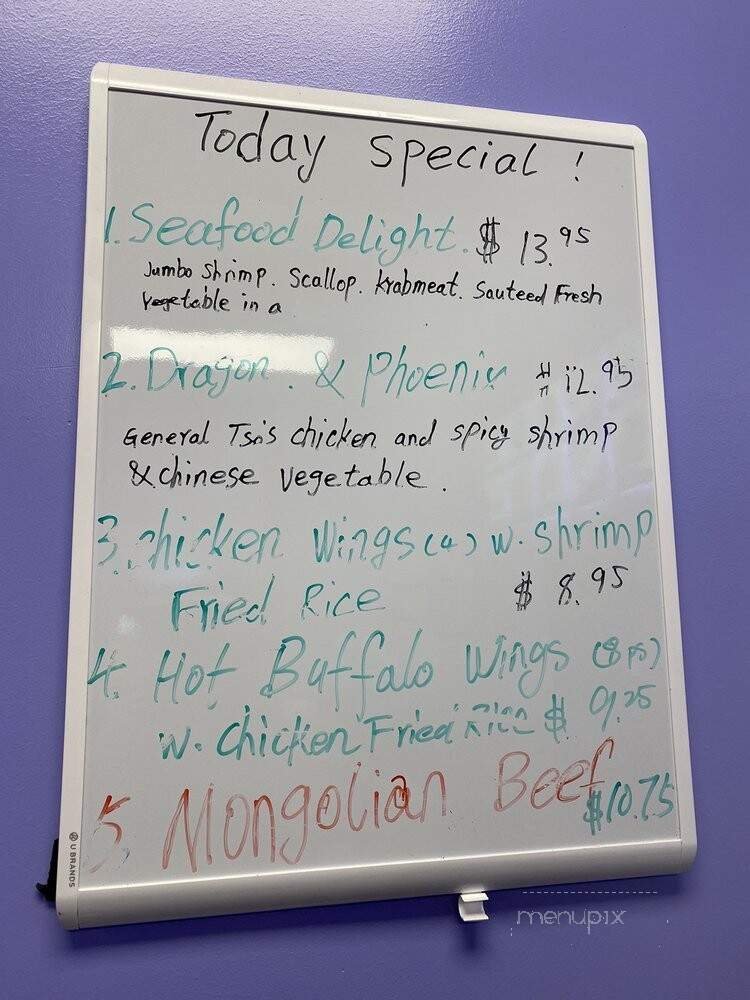 Today special !
1. Seafood Delight. $ 13.95
Jumbo shrimp. Scallop. krabmeat. Sauteed Fresh
vegetable in a
2. Dragon . & Phoenix $ 12.95
General Tso's chicken and spicy shrimp
& chinese vegetable .
3. chicken wings (4) w. shrimp
Fried Rice $ 8.95
4. Hot Buffalo wings (8 ps)
w. chicken Fried Rice $ 9.25
5. Mongolian Beef
$10.75
U BRANDS
menupix